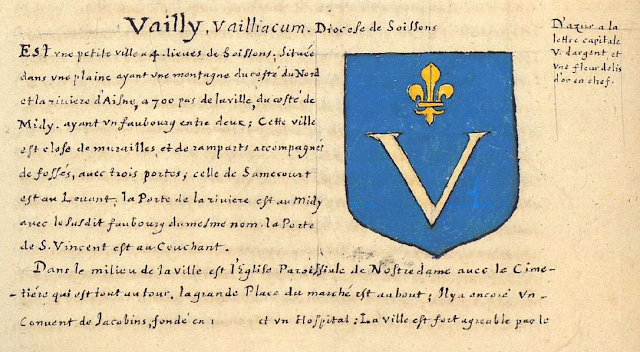 Vailly, Vailliacum. Diocese de Soissons
Est vne petite ville a 4. lieues de Soissons, située
dans vne plaine ayant vne montagne du costé du Nord
et la riviere d'Aisne, a 700 pas de la ville, du costé de
Midy. ayant vn faubourg entre deux; Cette ville
est close de murailles, et de ramparts accompagnés
de fossés, avec trois portes; celle de Samecourt
est au Levant, la Porte de la riviere est au Midy
avec le susdit faubourg du mesme nom. la Porte
de S. Vincent est au Couchant.
Dans le milieu de la ville est l'Eglise Paroissiale de Nostredame avec le Cime-
-tiére qui est tout autour, la grande Place du marché est au bout; Il y a encore Vn
Convent de Jacobins, fondé en 1 et vn Hospital; La ville est fort agreable par le
D'azur a la
lettre capitale
V. d'argent et
vne fleurdelis
d'or en chef.
V